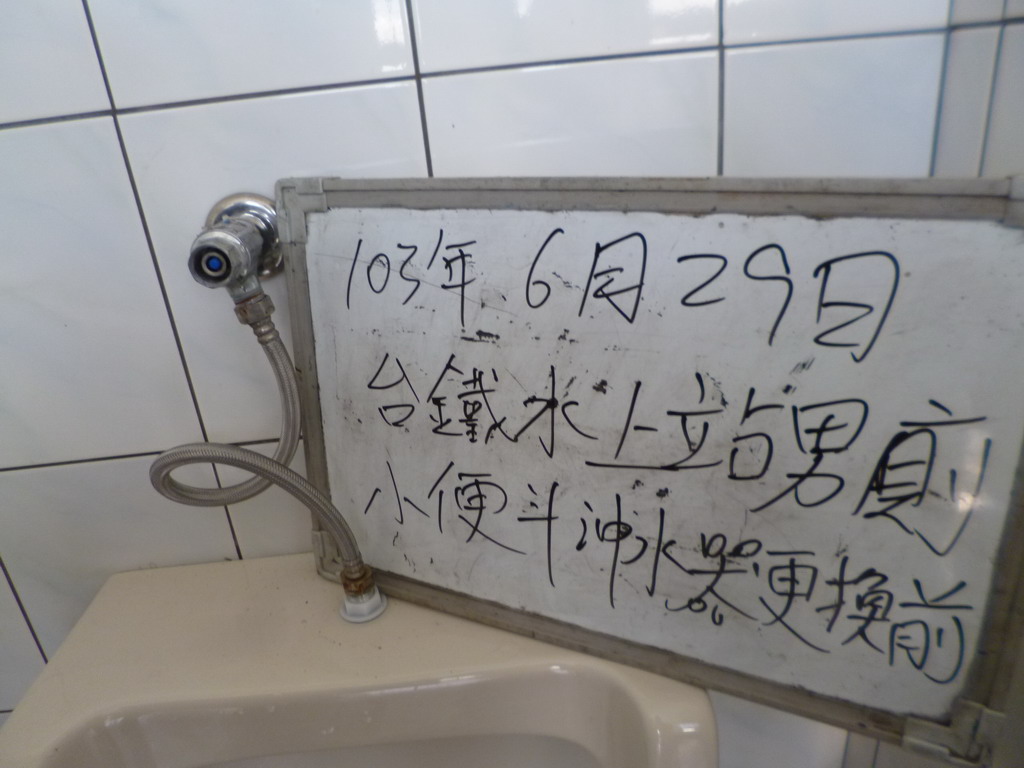 103年 6月29日
台鐵水上站男廁
小便斗沖水器更換前